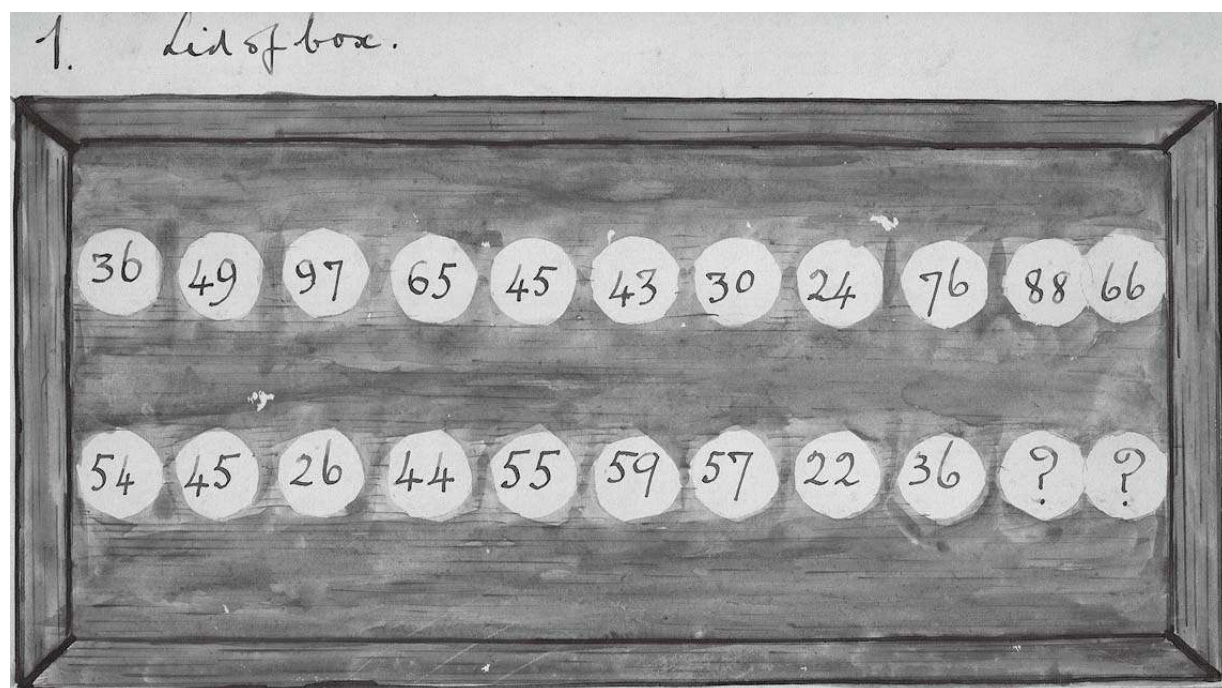 1. Lid of box.
36 49 97 65 45 43 30 24 76 88 66
54 45 26 44 55 59 57 22 36 ? ?